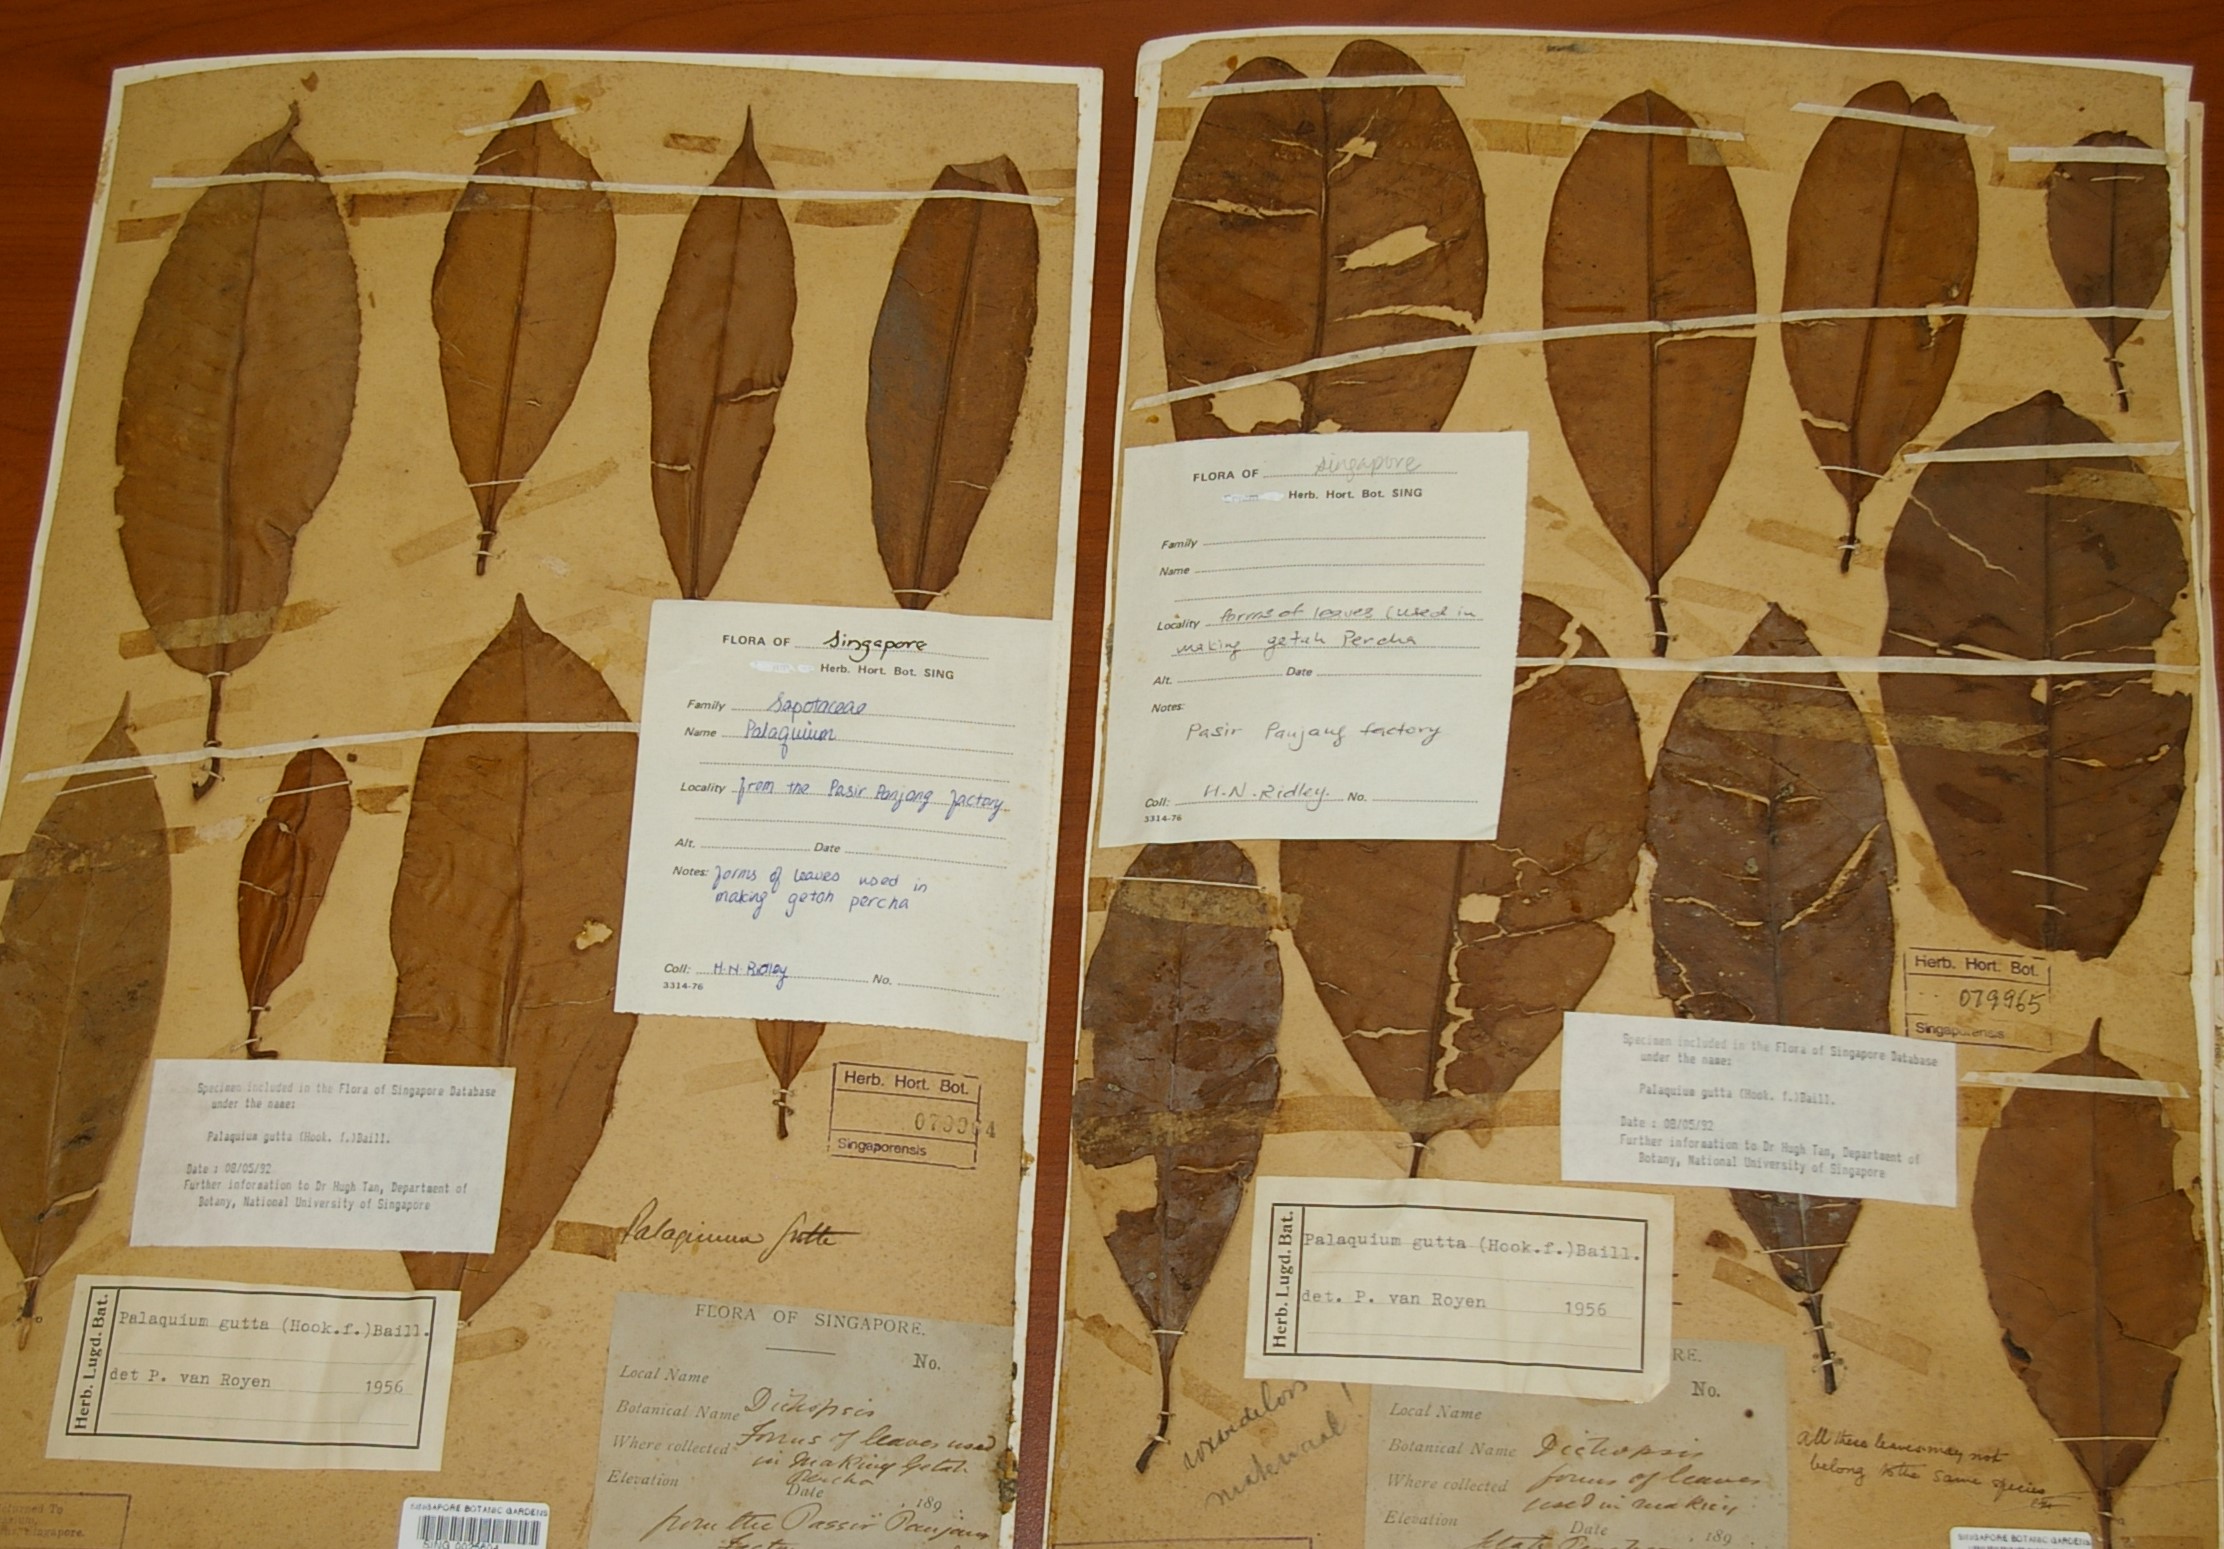 FLORA OF Singapore
Herb. Hort. Bot. SING
Family Sapotaceae
Name Palaquium
Locality from the Pasir Panjang factory
Alt. Date
Notes: forms of leaves used in
making getah percha
Coll: H.N. Ridley No.
3314-76
Specimen included in the Flora of Singapore Database
under the name:
Palaquium gutta (Hook. f.)Baill.
Date : 08/05/92
Further information to Dr Hugh Tan, Department of
Botany, National University of Singapore
Herb. Hort. Bot.
Singaporensis
Palaquium
Herb. Lugd. Bat.
Palaquium gutta (Hook.f.)Baill.
det P. van Royen 1956
FLORA OF SINGAPORE.
No.
Local Name
Botanical Name Dichopsis
Where collected Forms of leaves used
in making Getah
Elevation Percha
Date , 189 .
from the Passir Panjang
SINGAPORE BOTANIC GARDENS
FLORA OF Singapore
Herb. Hort. Bot. SING
Family
Name
Locality forms of leaves (used in
making getah Percha
Alt. Date
Notes:
Pasir Panjang factory
Coll: H.N. Ridley. No.
3314-76
Herb. Hort. Bot.
079965
Singaporensis
Specimen included in the Flora of Singapore Database
under the name:
Palaquium gutta (Hook. f.)Baill.
Date : 08/05/92
Further information to Dr Hugh Tan, Department of
Botany, National University of Singapore
Herb. Lugd. Bat.
Palaquium gutta (Hook.f.)Baill.
det. P. van Royen 1956
material!
RE.
No.
Local Name
Botanical Name Dichopsis
Where collected forms of leaves
used in making
Elevation
Date , 189 .
all these leaves may not
belong to the same species
SINGAPORE BOTANIC GARDENS